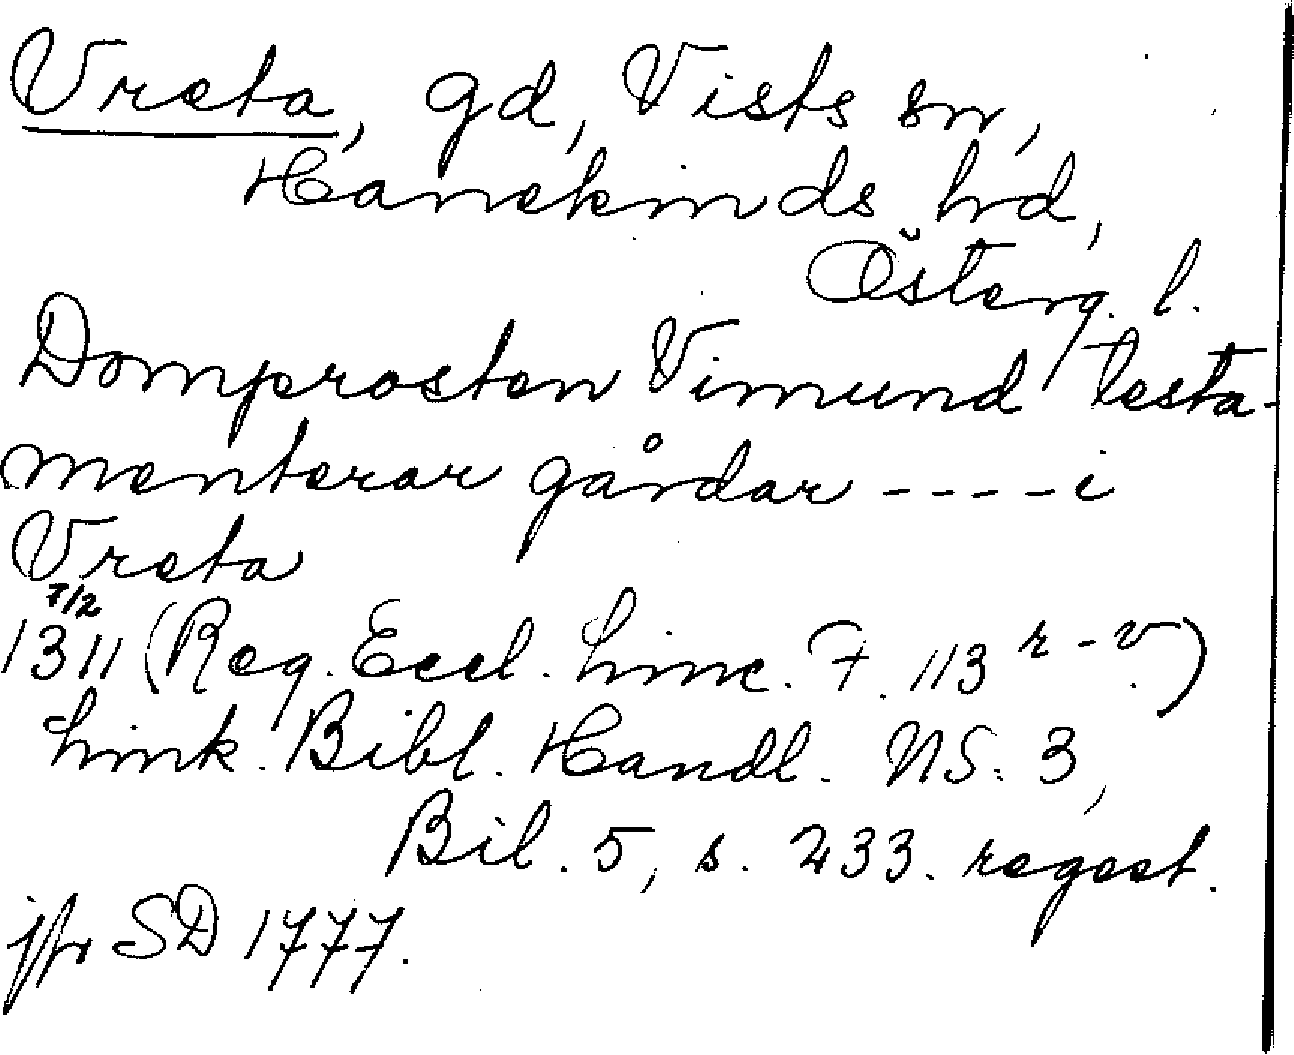 Vreta, gd, Vists sn,
Hanekinds hd,
Österg. l.
Domprosten Vimund testa-
menterar gårdar ---- i
Vreta
7/2
1311 (Reg. Eccl. Linc. F. 113 r-v.)
Link. Bibl. Handl. NS. 3,
Bil. 5, s. 233. regest.
jfr SD 1777.